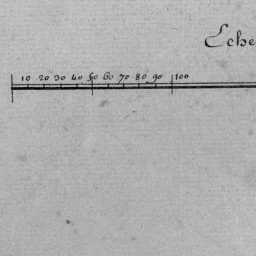 Eche
10 20 30 40 50 60 70 80 90 100